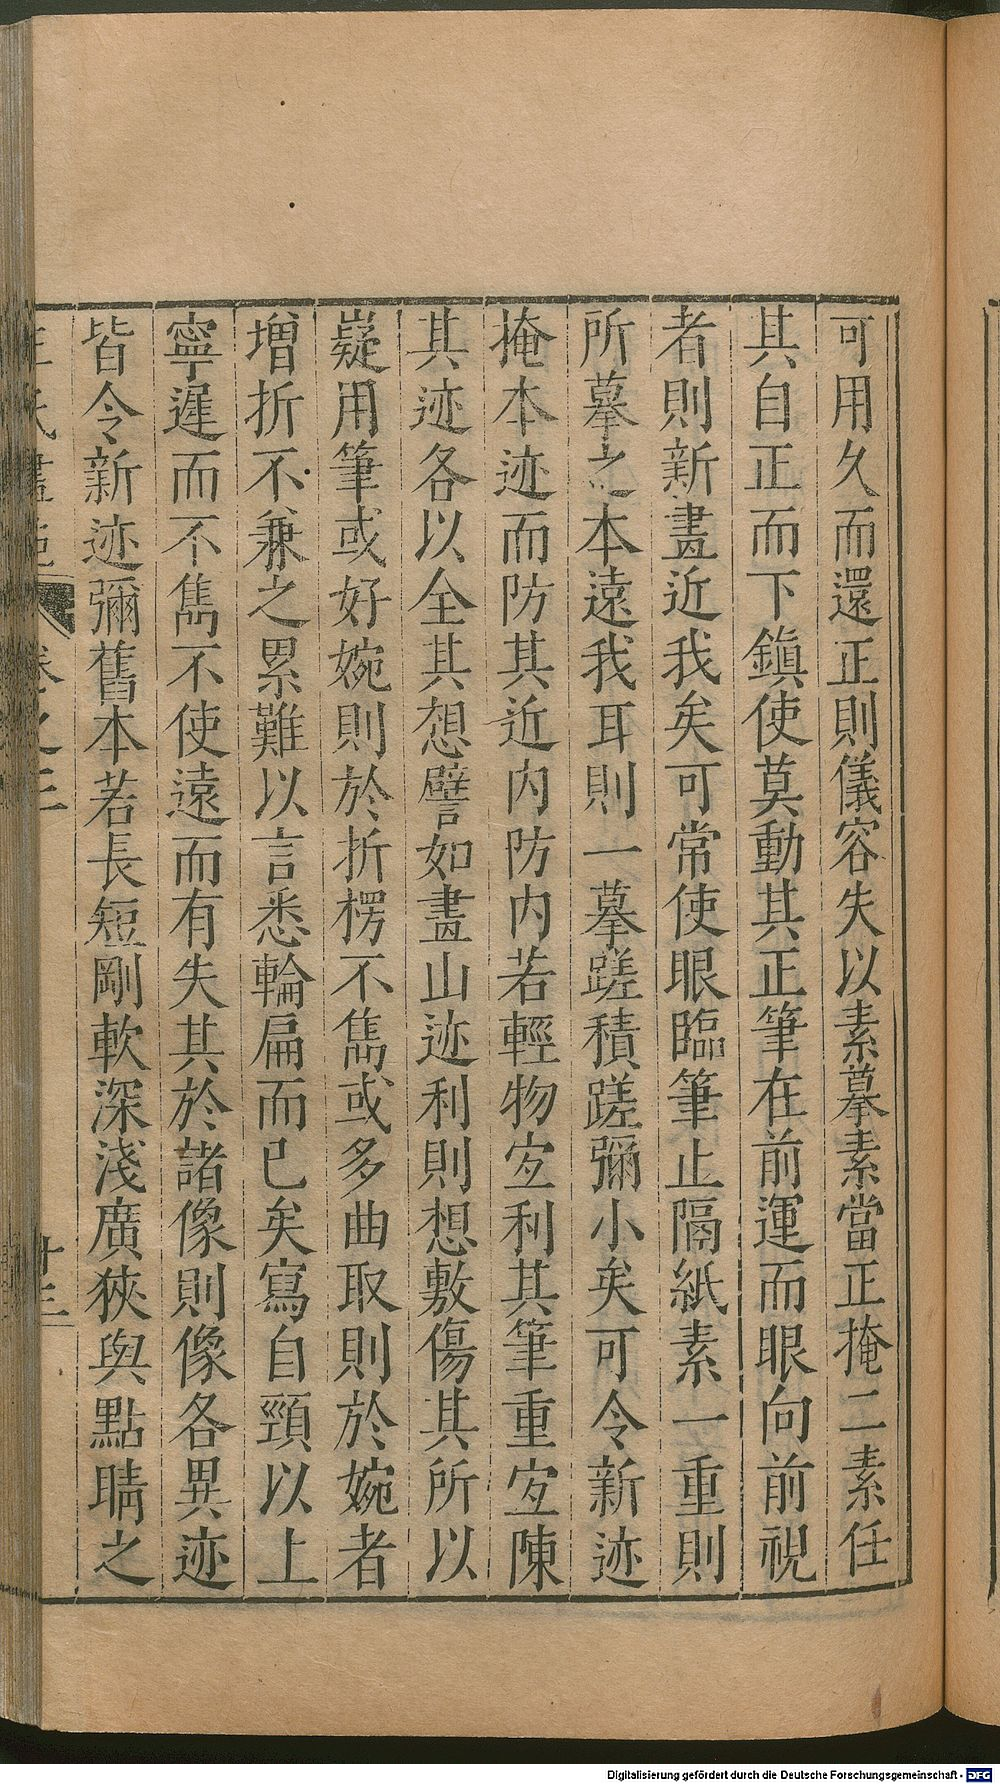 可用久而還正則儀容失以素摹素當正掩二素任
其自正而下鎮使莫動其正筆在前運而眼向前視
者則新畫近我矣可常使眼臨筆止隔紙素一重則
所摹之本遠我耳則一摹蹉積蹉彌小矣可令新迹
掩本迹而防其近內防內若輕物宐利其筆重宐陳
其迹各以全其想譬如畫山迹利則想敷傷其所以
嶷用筆或好婉則於折楞不雋或多曲取則於婉者
增折不兼之累難以言悉輪扁而已矣寫自頸以上
寧遲而不雋不使遠而有失其於諸像則像各異迹
皆令新迹彌舊本若長短剛軟深淺廣狹與點睛之
王氏畫苑 卷之三 廿三
Digitalisierung gefördert durch die Deutsche Forschungsgemeinschaft - DFG